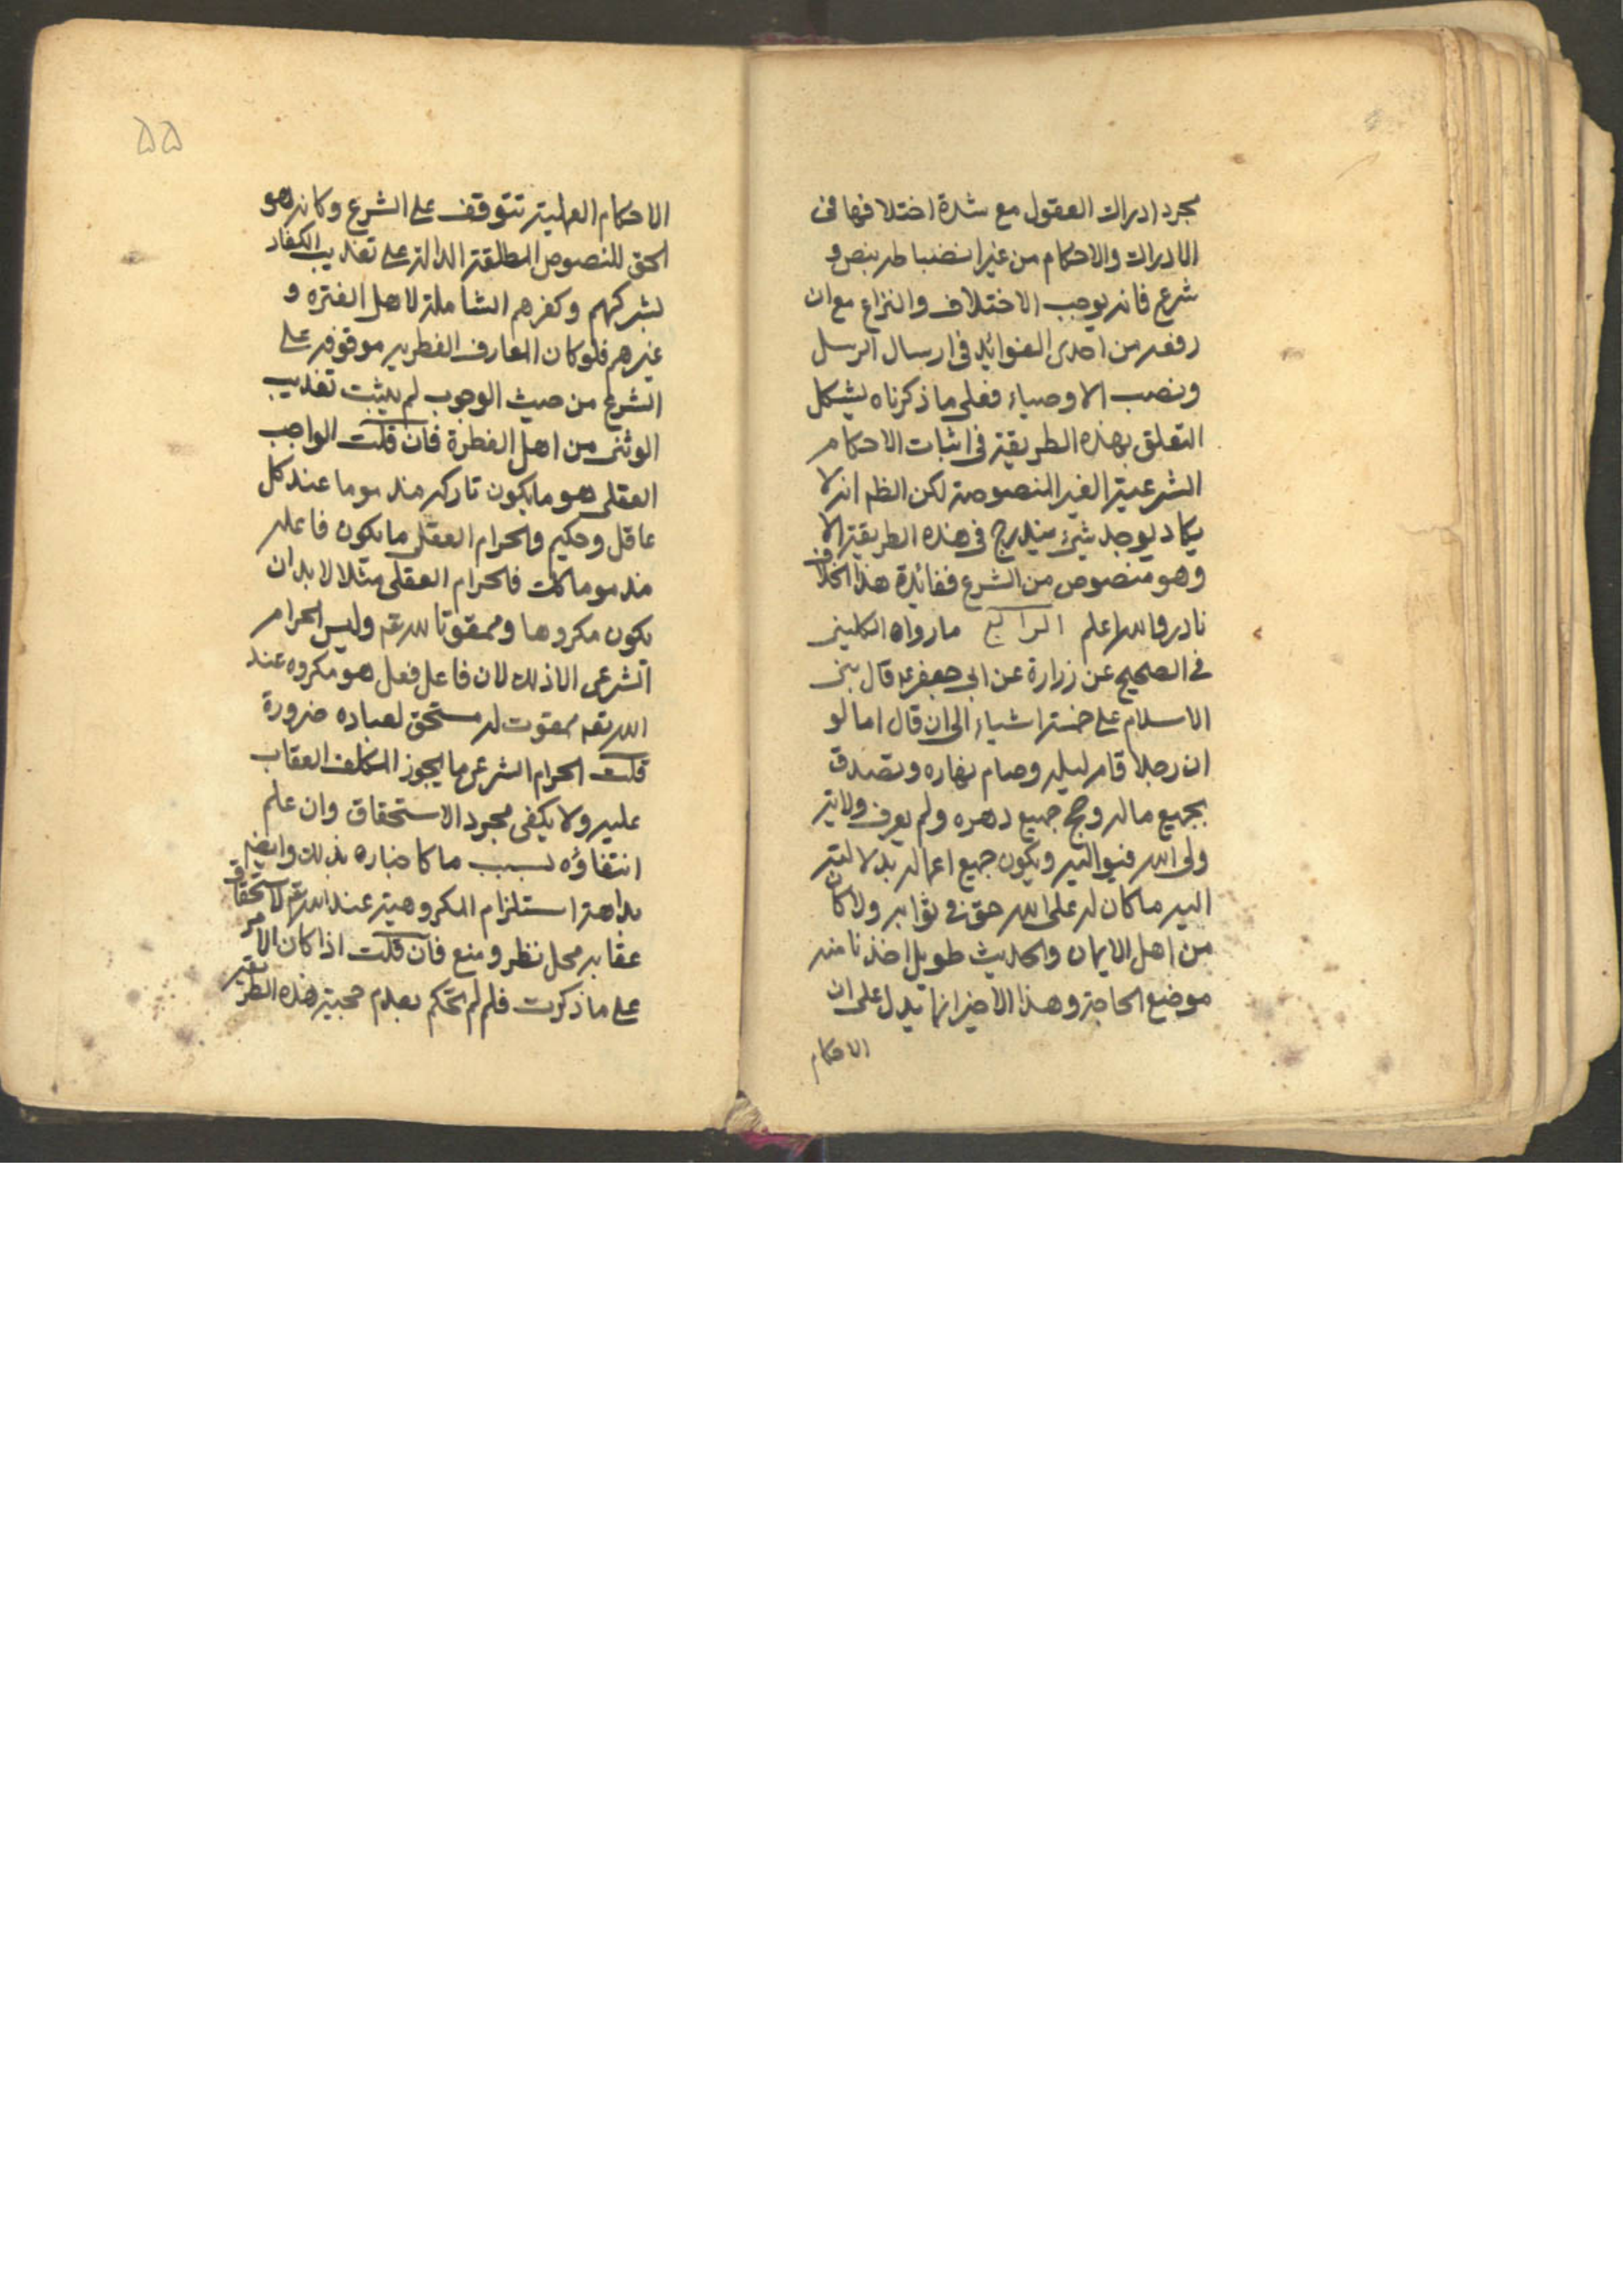 مجرد ادراك العقول مع شدة اختلافها فى
الادراك والاحكام من غير انضباطه بنص و
شرع فانه يوجب الاختلاف والنزاع مع ان
رفعه من احدى الفوائد فى ارسال الرسل
ونصب الاوصياء فعلى ما ذكرناه يشكل
التعلق بهذه الطريقة فى اثبات الاحكام
الشرعية الغير المنصوصة لكن الظم انه لا
يكاد يوجد شئ يندرج فى هذه الطريقة الا
وهو منصوص من الشرع ففائدة هذا الخلاف
نادر والله اعلم الرابع ما رواه الكلينى
فى الصحيح عن زرارة عن ابى جعفر ع قال بنى
الاسلام على خمسة اشياء الى ان قال اما لو
ان رجلا قام ليله وصام نهاره وتصدق
بجميع ماله وحج جميع دهره ولم يعرف ولاية
ولى الله فيواليه ويكون جميع اعماله بدلالته
اليه ما كان له على الله حق فى ثوابه ولا كان
من اهل الايمان والحديث طويل اخذنا منه
موضع الحاجة وهذا الاخير انما يدل على ان
الاحكام
۵۵
الاحكام العملية تتوقف على الشرع وكانه هو
الحق للنصوص المطلقة الدالة على تعذيب الكفار
بشركهم وكفرهم الشاملة لاهل الفتره و
غيرهم فلو كان المعارف الفطريه موقوفه على
الشرع من حيث الوجوب لم يثبت تعذيب
الوثنى من اهل الفطرة فان قلت الواجب
العقلى هو ما يكون تاركه مذموما عند كل
عاقل وحكيم والحرام العقلى ما يكون فاعله
مذموما كك فالحرام العقلى مثلا لا بد ان
يكون مكروها وممقوتا لله تعم وليس الحرام
الشرعى الا ذلك لان فاعل فعل هو مكروه عند
الله تعم ممقوت له مستحق لعبادہ ضرورة
قلت الحرام الشرعى ما يجوز المكلف العقاب
عليه ولا يكفى مجرد الاستحقاق وان علم
انتفاؤه بسبب ما كاخباره بذلك وايضم
بداهة استلزام المكروهية عند الله تعم لاستحقاق
عقابه محل نظر ومنع فان قلت اذا كان الامر
على ما ذكرت فلم لم تحكم بعدم حجية هذه الطريقة